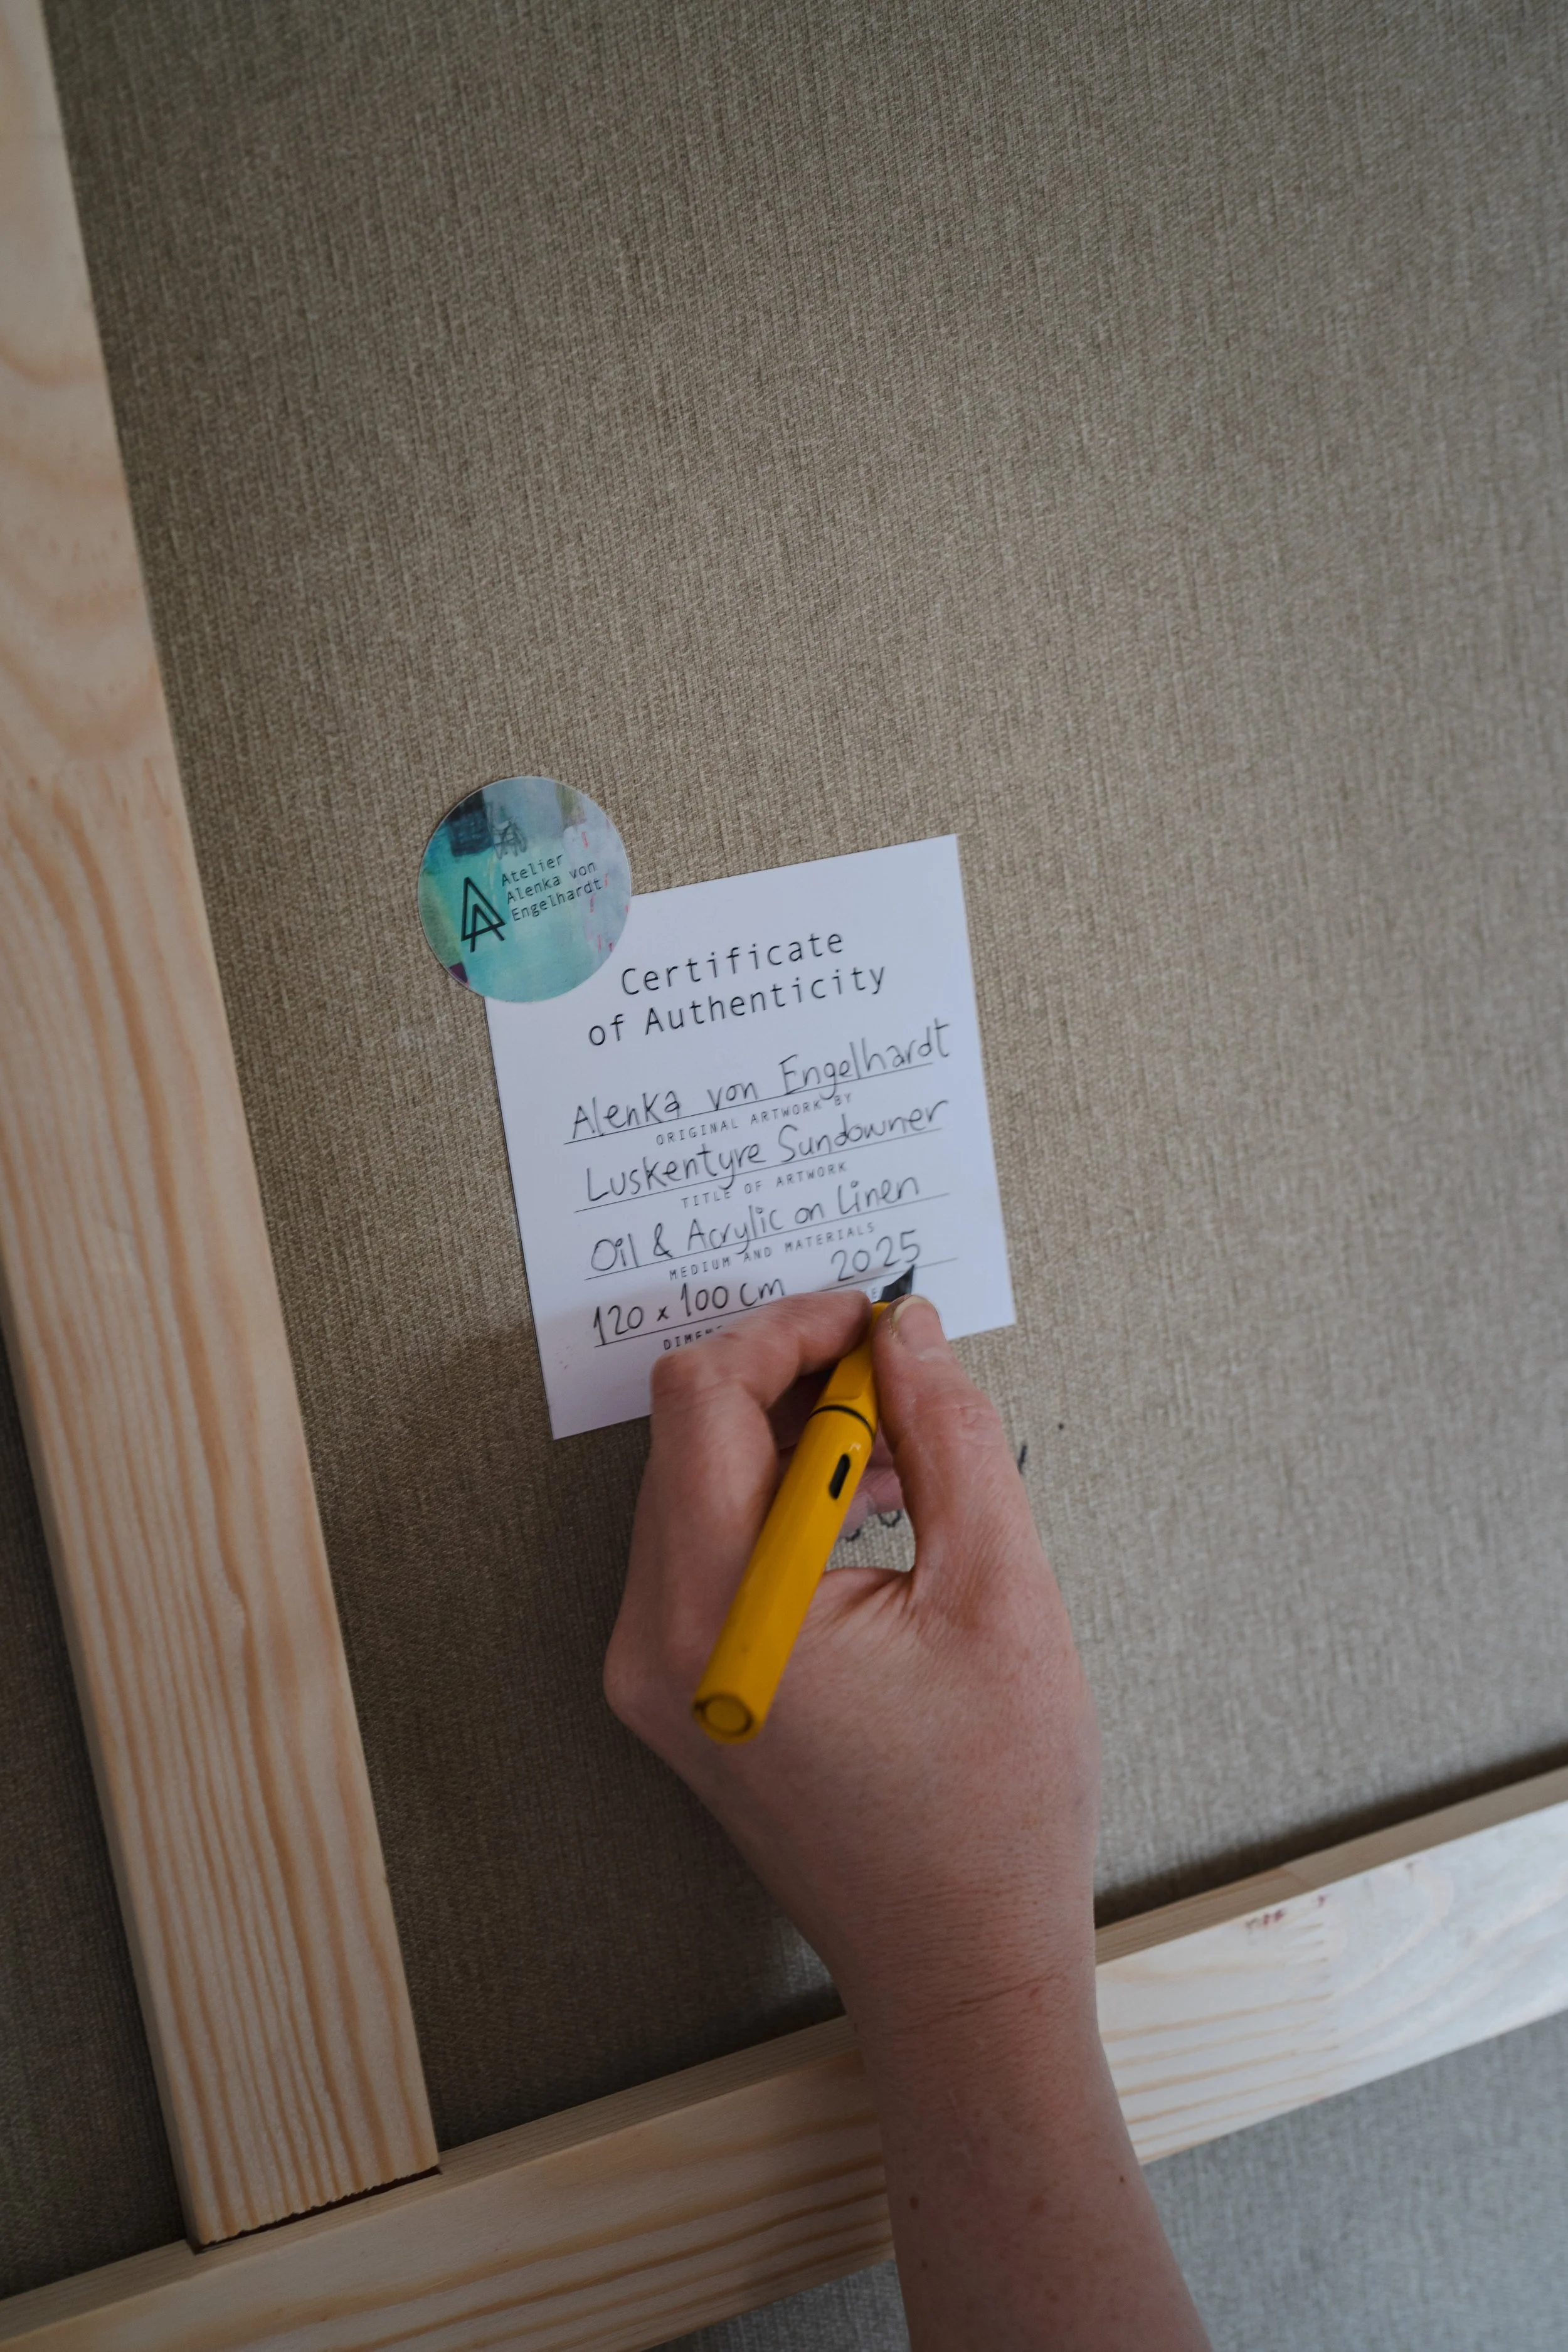 Atelier
Alenka von
Engelhardt
Certificate
of Authenticity
Alenka von Engelhardt
ORIGINAL ARTWORK BY
Luskentyre Sundowner
TITLE OF ARTWORK
Oil & Acrylic on Linen
MEDIUM AND MATERIALS
120 x 100 cm 2025